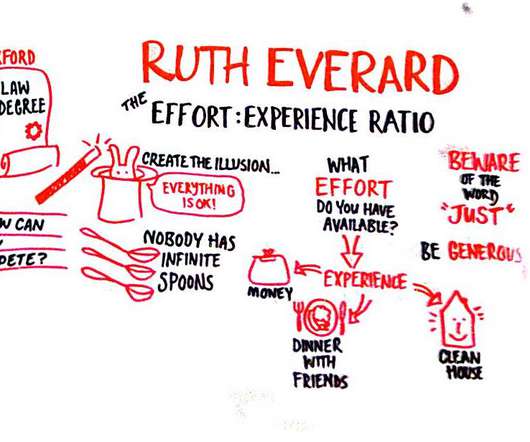 RUTH EVERARD
THE
EFFORT:EXPERIENCE RATIO
LAW
DEGREE
CREATE THE ILLUSION...
EVERYTHING
IS OK!
NOBODY HAS
INFINITE
SPOONS
WHAT
EFFORT
DO YOU HAVE
AVAILABLE?
EXPERIENCE
MONEY
DINNER
WITH
FRIENDS
CLEAN
HOUSE
BEWARE
OF THE
WORD
"JUST"
BE GENEROUS
CAN